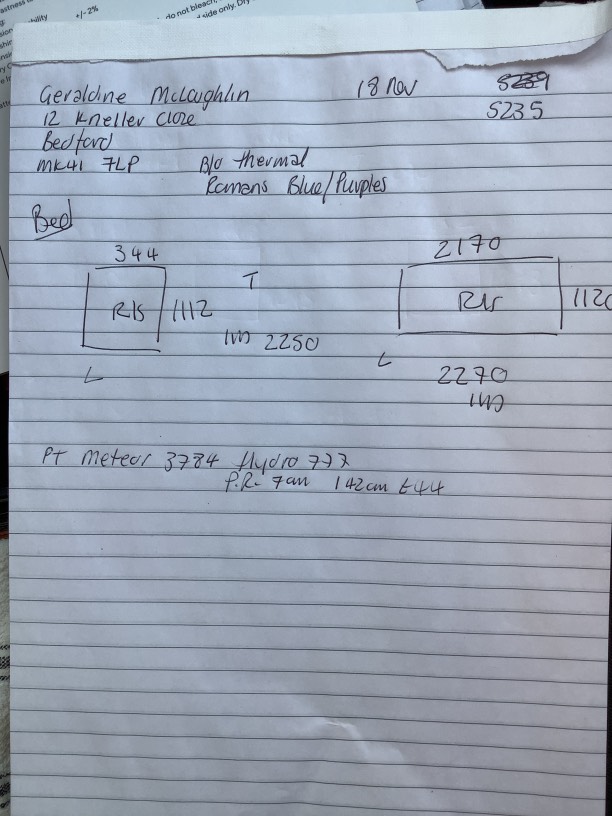 +/- 2%
do not bleach.
side only. Dry
Geraldine McLaughlin 18 Nov
5235
12 Kneller Close
Bedford
MK41 7LP B/O thermal
Romans Blue/Purples
Bed
344 2170
R/s 1112 T R/s 112
1m 2250
L L
2270
1m
PT Meteor 3784 Hydro 777
P.R. 7cm 142cm £44